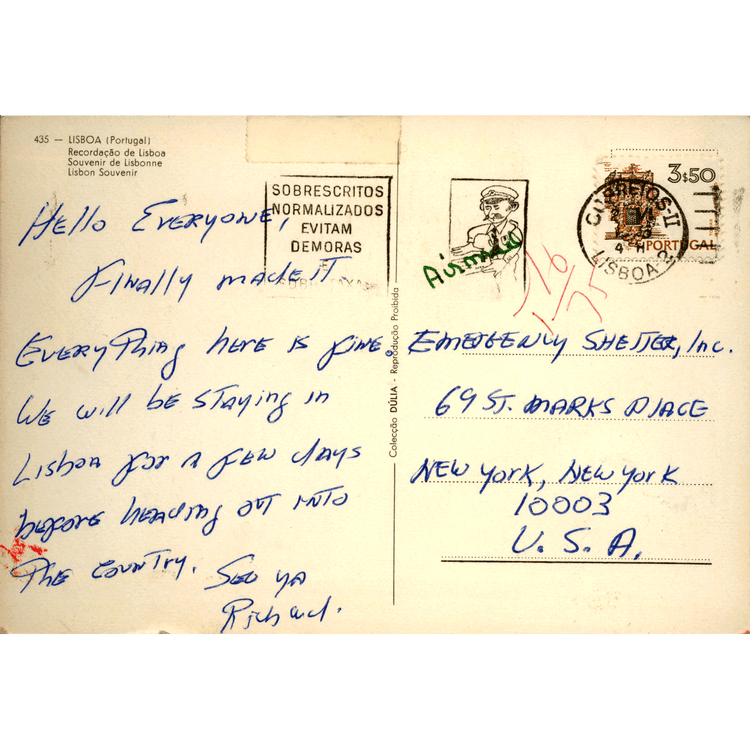 435 — LISBOA (Portugal)
Recordação de Lisboa
Souvenir de Lisbonne
Lisbon Souvenir
SOBRESCRITOS
NORMALIZADOS
EVITAM
DEMORAS
E
3$50
PORTUGAL
CORREIOS-II
LISBOA
Airmail
16
1/75
Hello Everyone,
Finally made it
Everything here is fine.
We will be staying in
Lisboa for a few days
before heading out into
the country. See ya
Richard.
Colecção DÚLIA - Reprodução Proibida
Emergency Shelter, Inc.
69 St. Marks Place
New York, New York
10003
U.S.A.